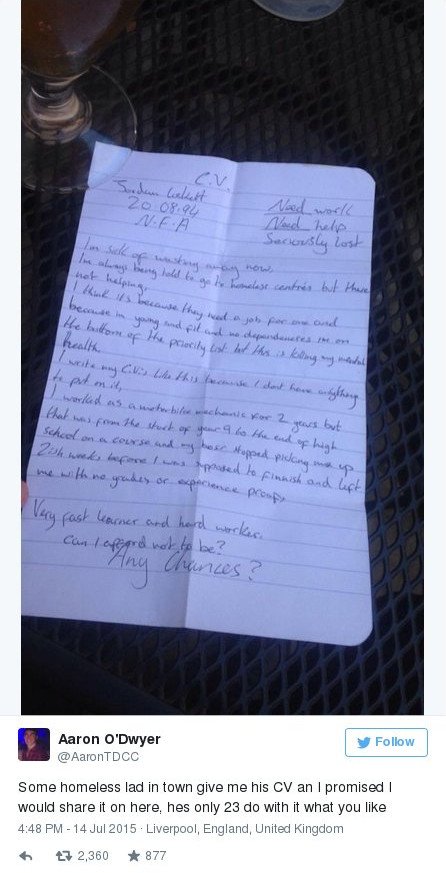 C.V.
Jordan
20 08.94
N.F.A
Need work
Need help
Seriously lost
Im sick of wasting away now,
Im always being told to go to homeless centres but there
not helping.
I think its because they need a job for me and
because im young and fit and no dependencies im on
the bottom of the priority list. but this is killing my mental
health.
I write my C.V.s like this because I dont have anything
to put on it,
I worked as a motorbike mechanic for 2 years but
that was from the start of year 9 to the end of high
school on a course and my boss stopped picking me up
2ish weeks before I was sopposed to finnish and left
me with no grades or experience proof,
Very fast learner and hard worker.
can I afford not to be?
Any Chances?
Aaron O'Dwyer
@AaronTDCC
Follow
Some homeless lad in town give me his CV an I promised I
would share it on here, hes only 23 do with it what you like
4:48 PM - 14 Jul 2015 · Liverpool, England, United Kingdom
2,360 877